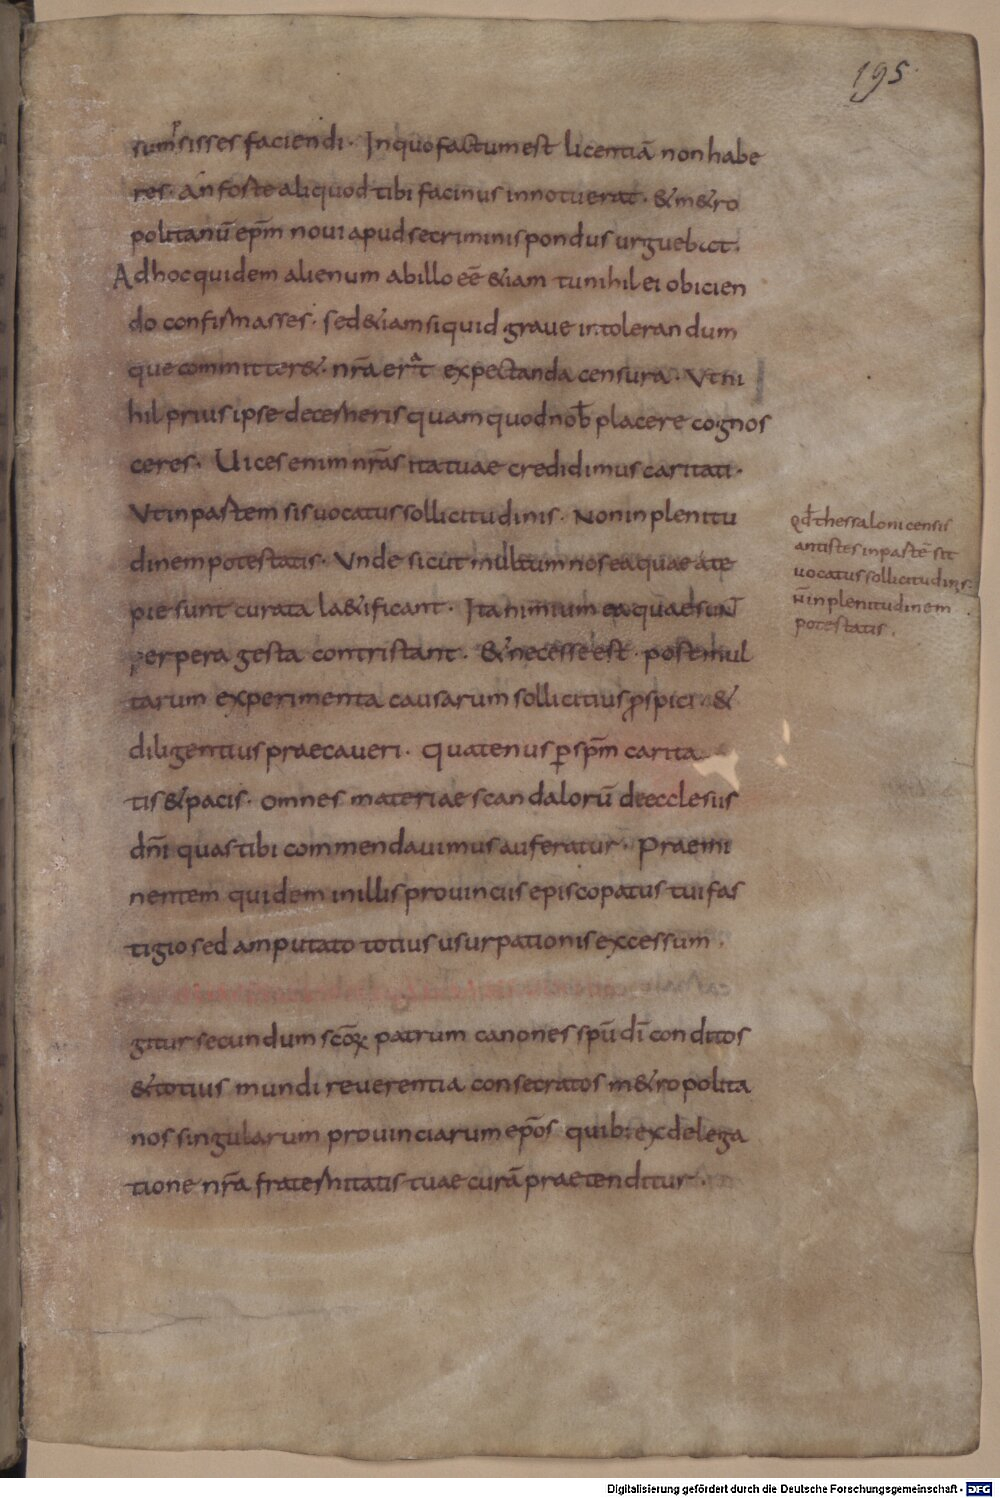 195
sumsisses faciendi. Inquo factum est licentiā non habe
res. an foste aliquod tibi facinus innotuerat. & m&ro
politanū ep̄m noui apud se criminis pondus urguebat.
Ad hoc quidem alienum ab illo eē &iam tu nihil ei obicien
do confirmasses. sed &iam si quid graue intolerandum
que committer&. nr̄a erat expectanda censura. Vt ni
hil prius ipse decerneris quam quod nob̄ placere cognos
ceres. Uices enim nr̄as ita tuae credidimus caritati.
Vt in partem sis uocatus sollicitudinis. Non in plenitu
dinem potestatis. Vnde sicut multum nos ea quae a te
pie sunt curata la&ificant. Ita nimium ea quae sunt
perpera gesta contristant. & necesse est. post mul
tarum experimenta causarum sollicitius ꝓspici. &
diligentius praecaueri. quatenus ꝑ sp̄m carita
tis & pacis. omnes materiae scandalorū de ecclesiis
dn̄i quas tibi commendauimus auferatur. Praemi
nentem quidem in illis prouinciis episcopatus tui fas
tigio sed amputato totius usurpationis excessum.
gitur secundum scōꝝ patrum canones spū dī conditos
& totius mundi reuerentia consecratos m&ropolita
nos singularum prouinciarum ep̄os quib: ex delega
tione nr̄a fraternitatis tuae curā praetenditur.
qd̄ thessalonicensis
antistes in partē sit
uocatus sollicitudinis
n̄ in plenitudinem
potestatis.
Digitalisierung gefördert durch die Deutsche Forschungsgemeinschaft - DFG